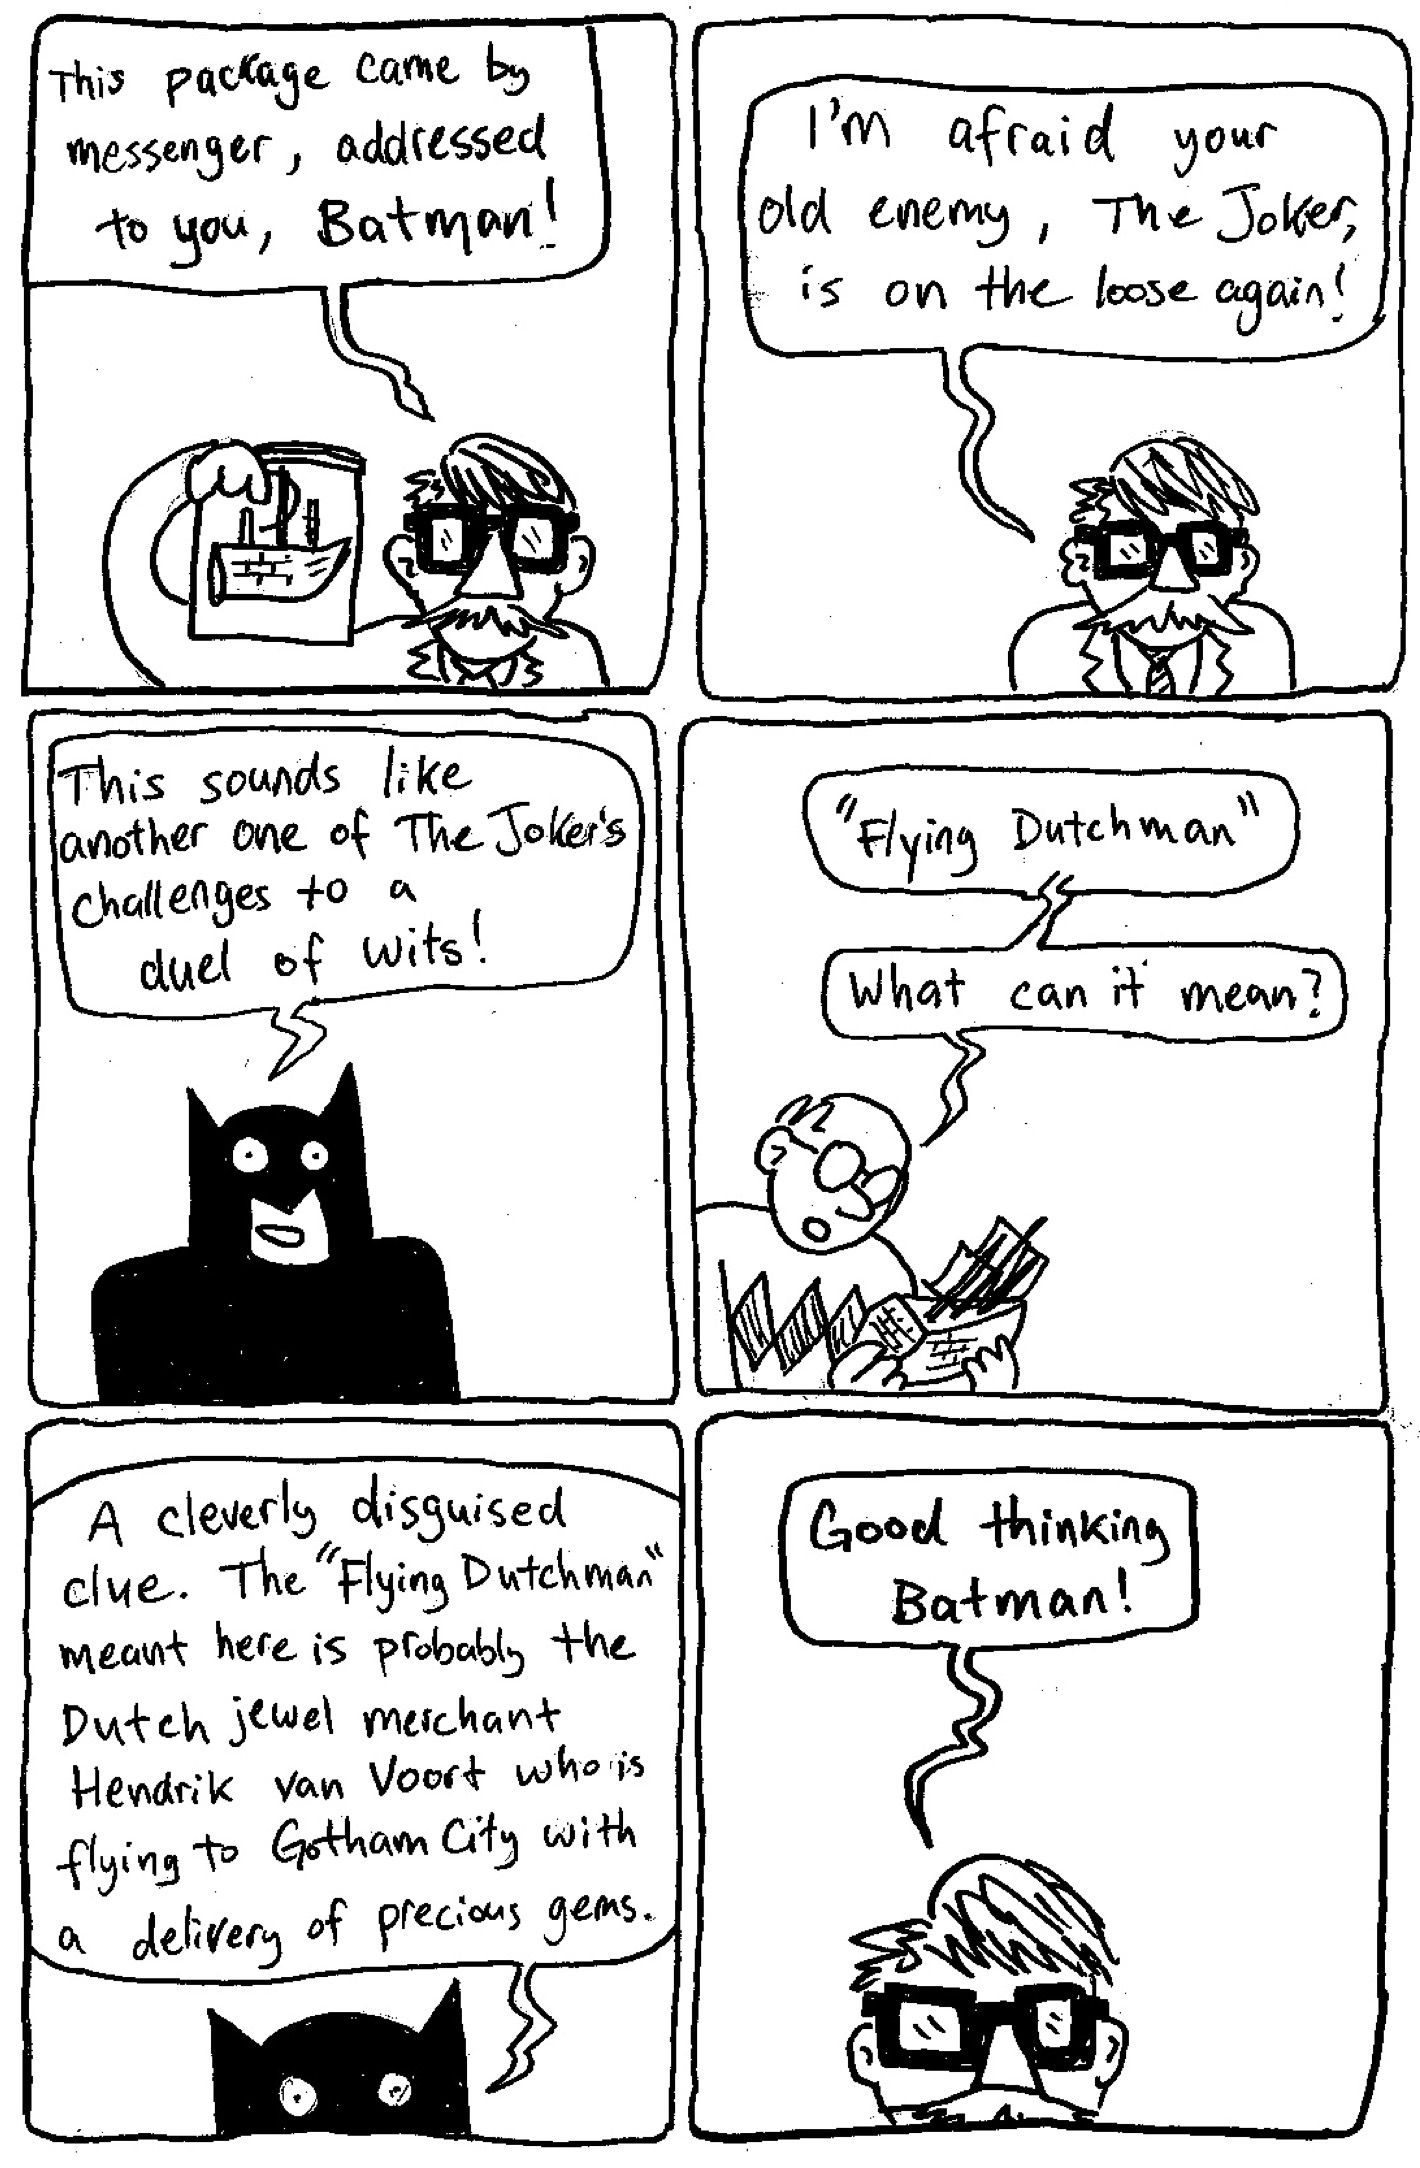 This package came by
messenger, addressed
to you, Batman!
I'm afraid your
old enemy, The Joker,
is on the loose again!
This sounds like
another one of The Joker's
challenges to a
duel of wits!
"Flying Dutchman"
What can it mean?
A cleverly disguised
clue. The "Flying Dutchman"
meant here is probably the
Dutch jewel merchant
Hendrik van Voort who is
flying to Gotham City with
a delivery of precious gems.
Good thinking
Batman!